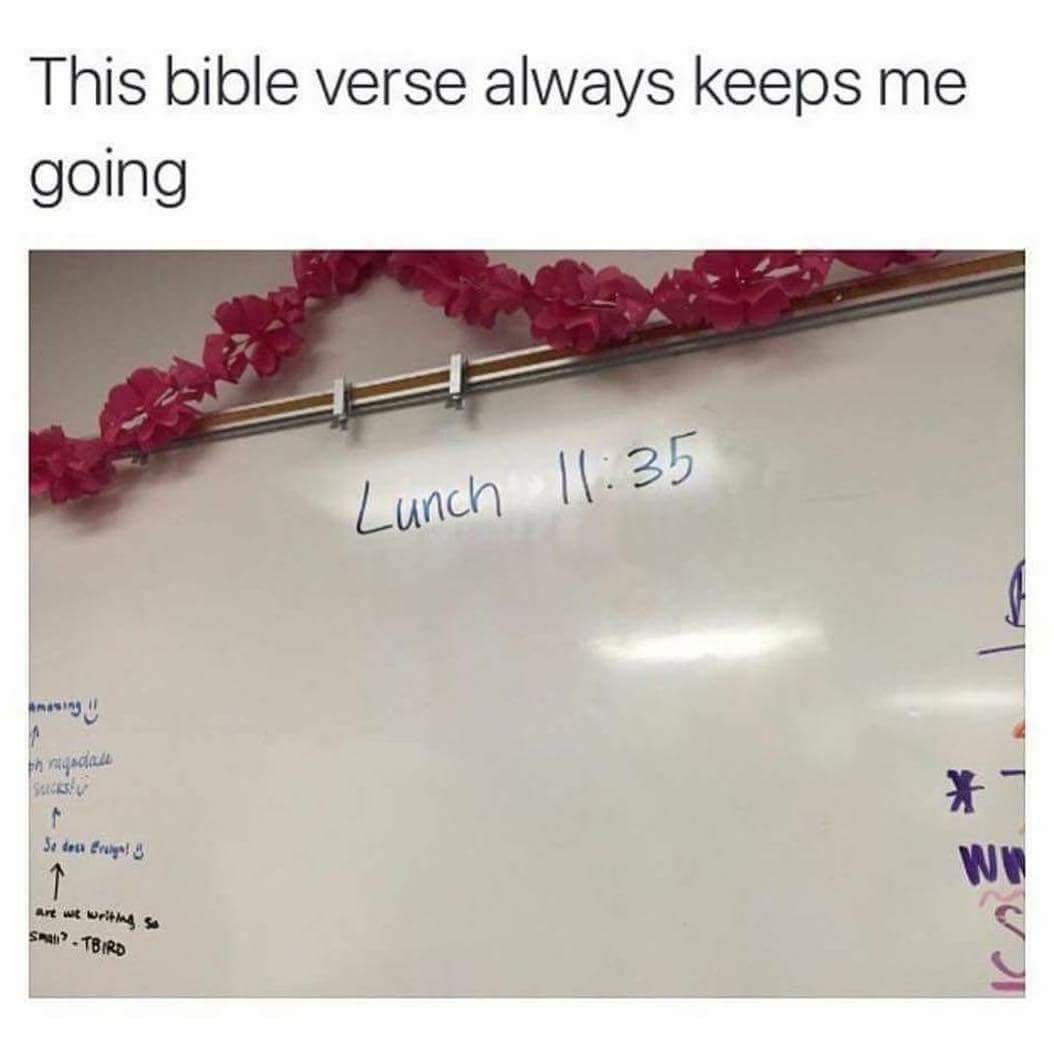 This bible verse always keeps me
going
Lunch 11:35
Amazing !!
sucks!
So does
are we writing so
small? - TBIRD
*